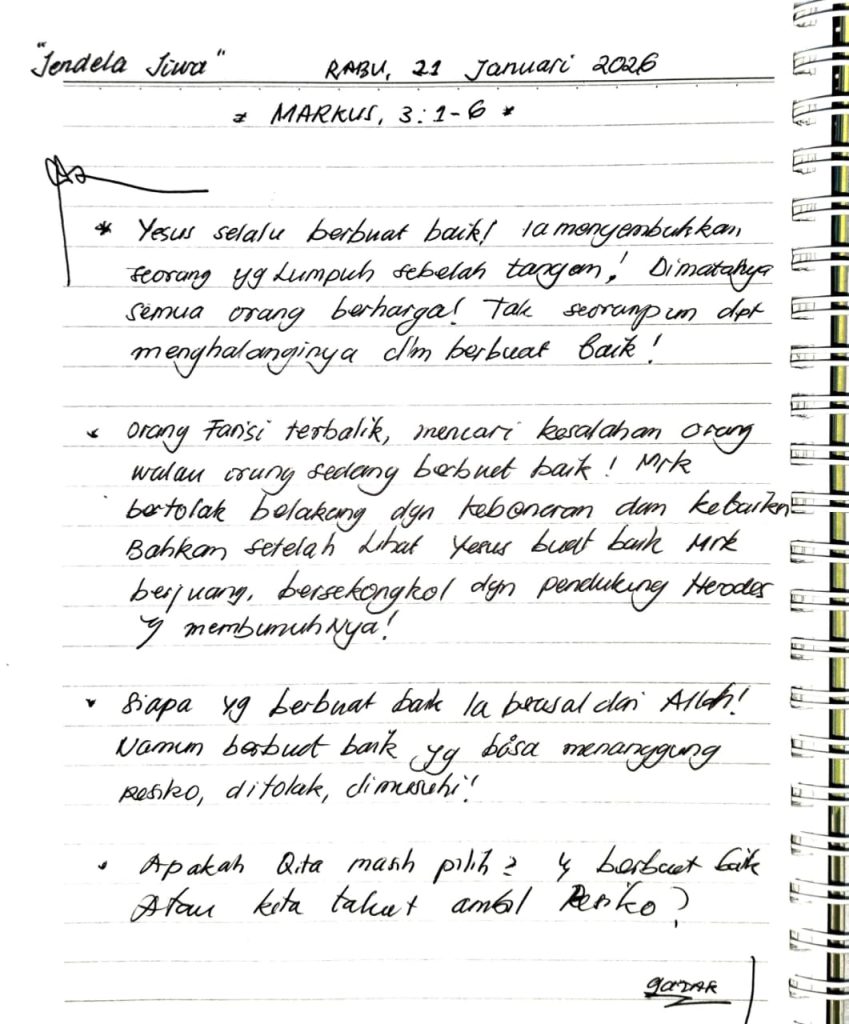 "Jendela Jiwa" RABU, 21 Januari 2026
* MARKUS, 3:1-6 *
* Yesus selalu berbuat baik! Ia menyembuhkan
seorang yg Lumpuh sebelah tangan! Dimatanya
semua orang berharga! Tak seorangpun dpt
menghalanginya dlm berbuat Baik!
* Orang Farisi terbalik, mencari kesalahan orang
walau orang sedang berbuat baik! Mrk
bertolak belakang dgn kebenaran dan kebaikn
Bahkan setelah Lihat Yesus buat baik Mrk
berjuang, bersekongkol dgn pendukung Herodes
membunuhNya!
* Siapa yg berbuat baik Ia berasal dari Allah!
Namun berbuat baik yg bisa menanggung
Resiko, ditolak, dimusuhi!
* Apakah Qita masih pilih2 berbuat baik
Atau kita takut ambil Resiko?